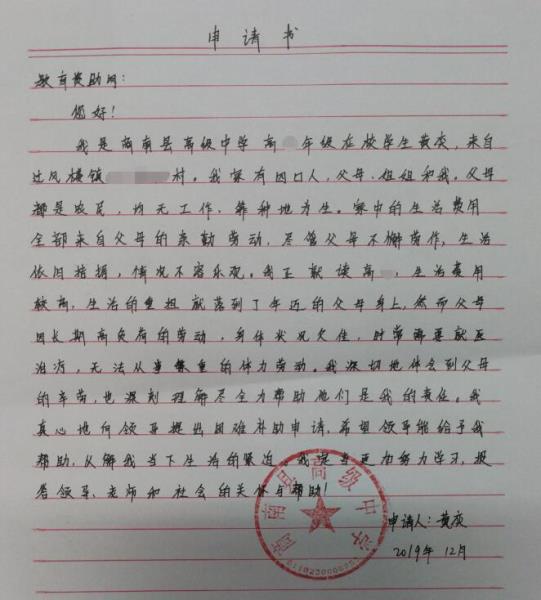 申请书
教育资助网：
您好！
我是商南县高级中学高年级在校学生黄森，来自
过风楼镇村。我家有四口人，父母、姐姐和我。父母
都是农民，均无工作、靠种地为生。家中的生活费用
全部来自父母的亲勤劳动，尽管父母不懈劳作，生活
依旧拮据，情况不容乐观。我正就读高，生活费用
较高，生活的重担就落到了年迈的父母身上，然而父母
因长期高负荷的劳动，身体状况欠佳，时常需要就医
治疗，无法从事繁重的体力劳动。我深切地体会到父母
的辛劳，也深刻理解尽全力帮助他们是我的责任。我
真心地向领导提出困难补助申请，希望领导能给予我
帮助，以解我当下生活的紧迫。我定当更加努力学习，报
答领导、老师和社会的关怀与帮助！
商南县高级中学
申请人：黄
2019年12月